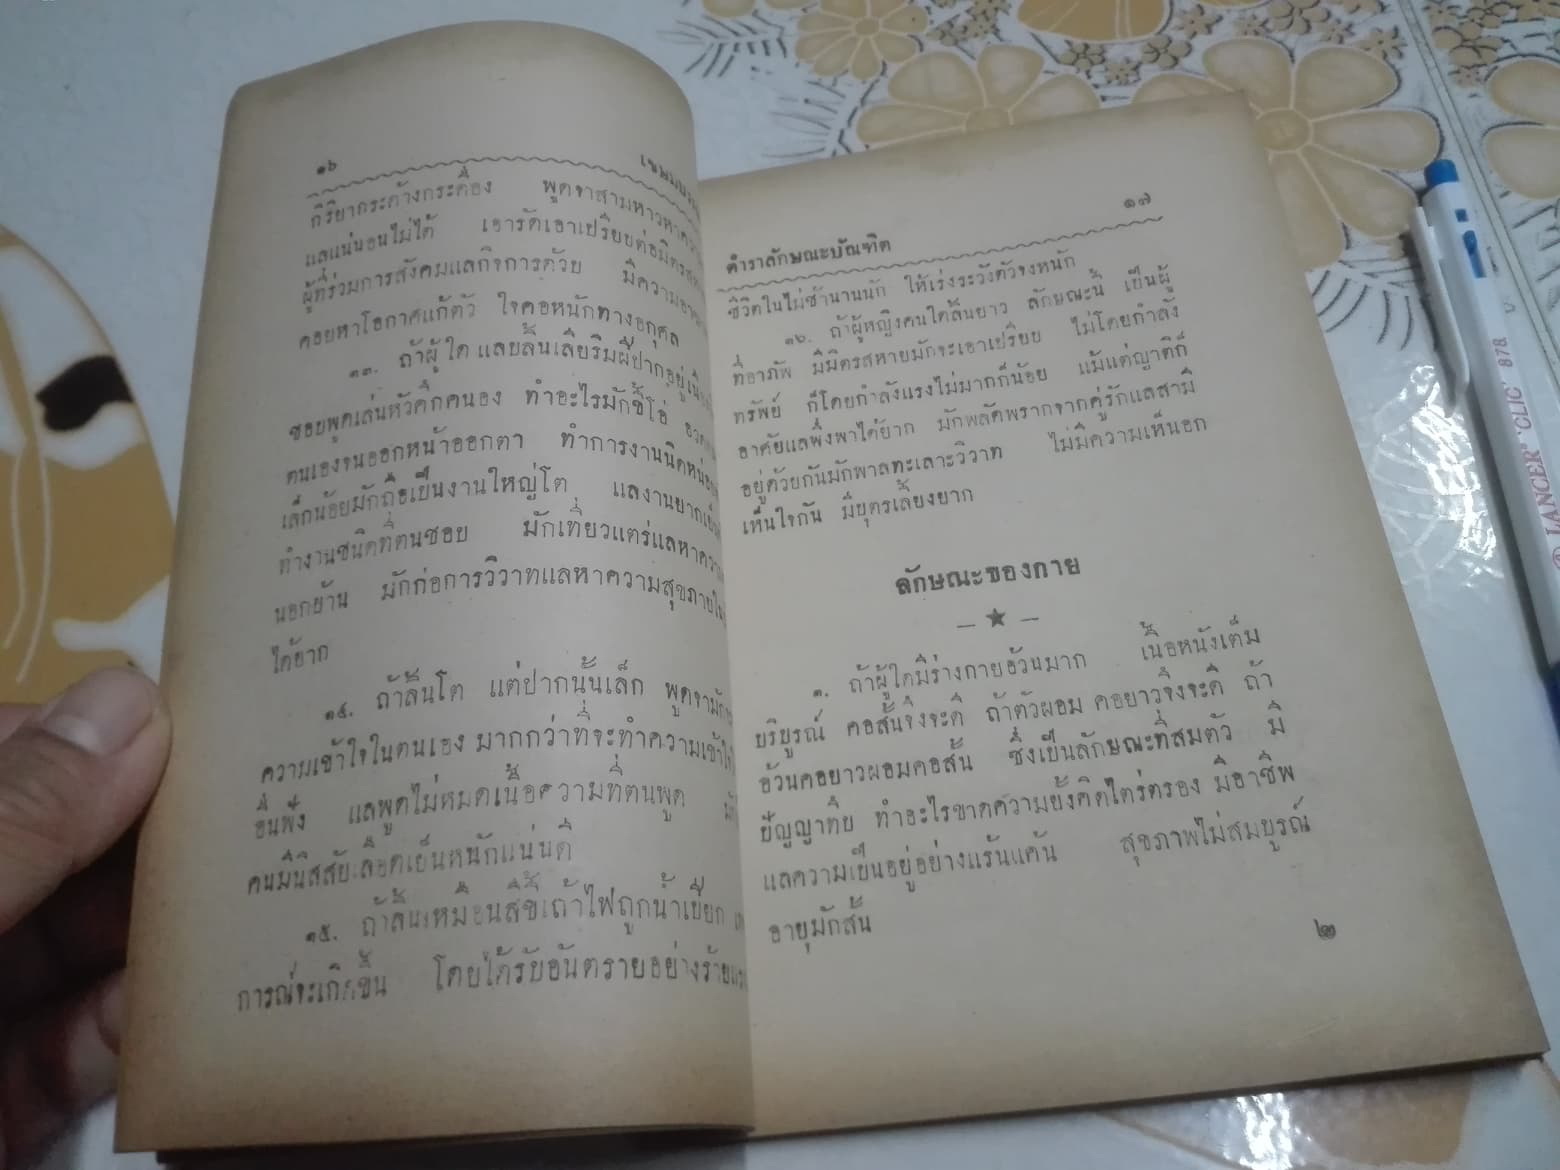 ๑๖ เขมบรร
กิริยากระด้างกระดื่อง พูดจาสามหาวหาคว
แลแน่นอนไม่ได้ เอารัดเอาเปรียบต่อมิตรสห
ผู้ที่ร่วมการสังคมแลกิจการด้วย มีความอา
คอยหาโอกาศแก้ตัว ใจคอหนักทางอกุศล
๑๓. ถ้าผู้ใดแลบลิ้นเลียริมฝีปากอยู่เนือ
ชอบพูดเล่นหัวคึกคนอง ทำอะไรมักขี้โอ่ อวด
ตนเองจนออกหน้าออกตา ทำการงานนิดหน่อย
เล็กน้อยมักถือเป็นงานใหญ่โต แลงานยากเย็น
ทำงานชนิดที่ตนชอบ มักเที่ยวแตร่แลหาความ
นอกบ้าน มักก่อการวิวาทแลหาความสุขภายใน
ได้ยาก
๑๔. ถ้าลิ้นโต แต่ปากนั้นเล็ก พูดจามัก
ความเข้าใจในตนเอง มากกว่าที่จะทำความเข้าใจ
อื่นฟัง แลพูดไม่หมดเนื้อความที่ตนพูด มัก
คนมีนิสสัยเลือดเย็นหนักแน่นดี
๑๕. ถ้าลิ้นเหมือนสีขี้เถ้าไฟถูกน้ำเปียก เห
การณ์จะเกิดขึ้น โดยได้รับอันตรายอย่างร้ายแร
ตำราลักษณะบัณฑิต ๑๗
ชีวิตในไม่ช้านานนัก ให้เร่งระวังตัวจงหนัก
๑๖. ถ้าผู้หญิงคนใดลิ้นยาว ลักษณะนี้ เป็นผู้
ที่อาภัพ มีมิตรสหายมักจะเอาเปรียบ ไม่โดยกำลัง
ทรัพย์ ก็โดยกำลังแรงไม่มากก็น้อย แม้แต่ญาติก็
อาศัยแลพึ่งพาได้ยาก มักพลัดพรากจากคู่รักแลสามี
อยู่ด้วยกันมักพาลทะเลาะวิวาท ไม่มีความเห็นอก
เห็นใจกัน มีบุตรเลี้ยงยาก
ลักษณะของกาย
๑. ถ้าผู้ใดมีร่างกายอ้วนมาก เนื้อหนังเต็ม
บริบูรณ์ คอสั้นจึงจะดี ถ้าตัวผอม คอยาวจึงจะดี ถ้า
อ้วนคอยาวผอมคอสั้น ซึ่งเป็นลักษณะที่สมตัว มี
ปัญญาทึบ ทำอะไรขาดความยั้งคิดไตร่ตรอง มีอาชีพ
แลความเป็นอยู่อย่างแร้นแค้น สุขภาพไม่สมบูรณ์
อายุมักสั้น
๒
LANCER CLIC 878